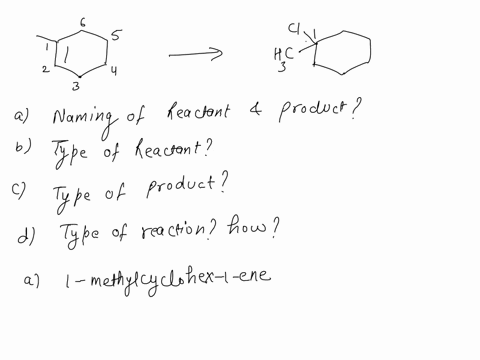 6
1
5
2
4
3
Cl
1
H3C
a) Naming of Reactant & product?
b) Type of Reactant?
c) Type of product?
d) Type of reaction? how?
a) 1-methylcyclohex-1-ene